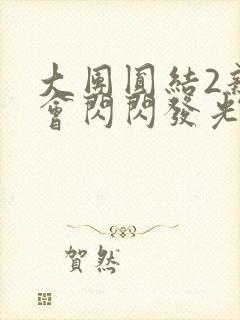 大團圓結2
會閃閃發光
賀然